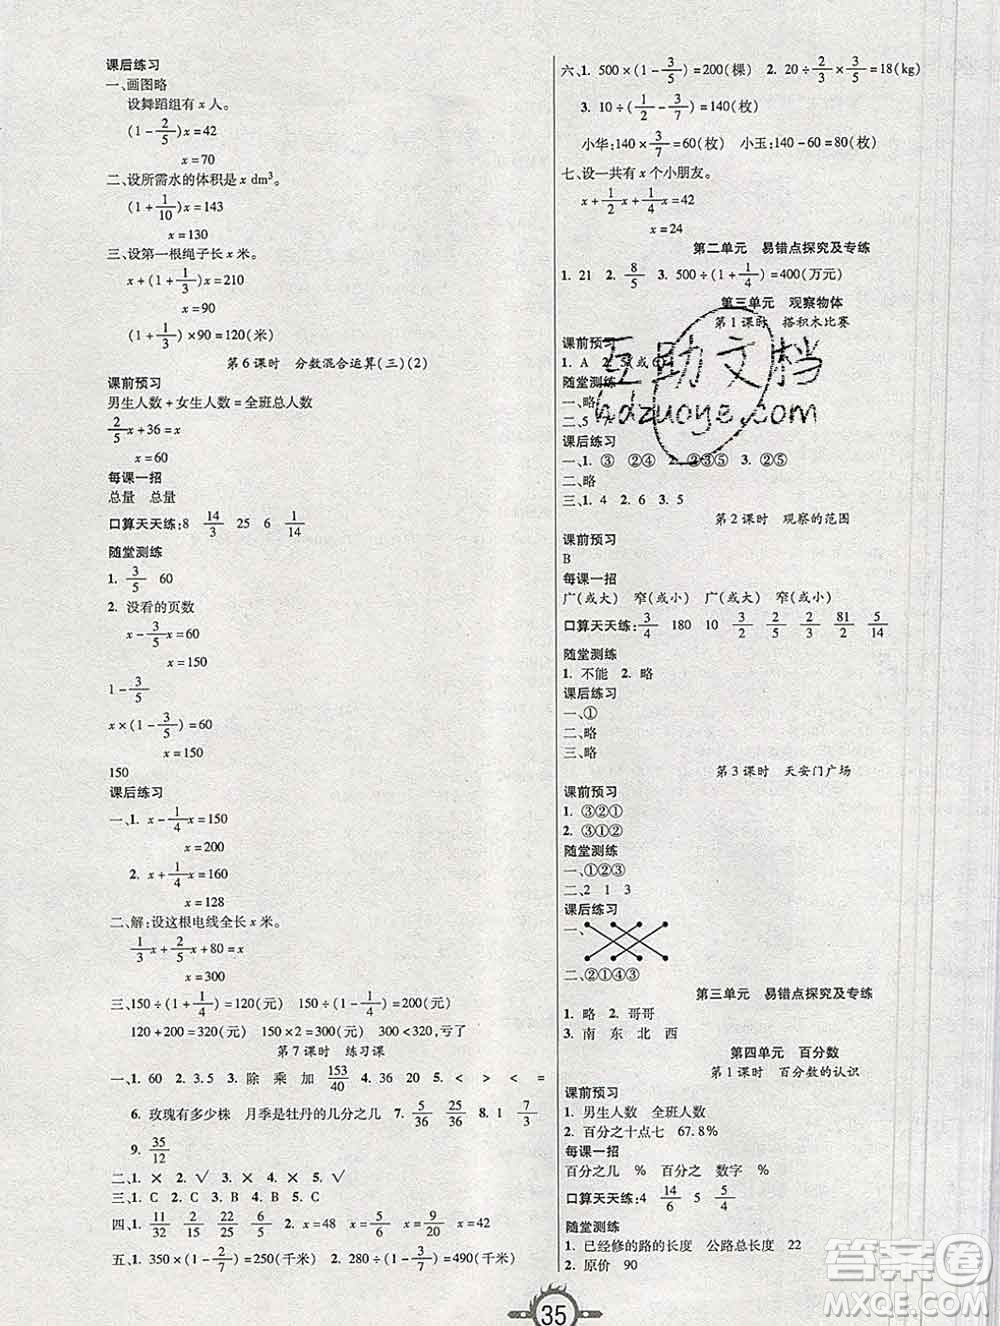 课后练习
一、画图略
设舞蹈组有 x 人。
(1-2/5)x=42
x=70
二、设所需水的体积是 x dm³。
(1+1/10)x=143
x=130
三、设第一根绳子长 x 米。
x+(1+1/3)x=210
x=90
(1+1/3)×90=120(米)
第 6 课时 分数混合运算(三)(2)
课前预习
男生人数+女生人数=全班总人数
2/5x+36=x
x=60
每课一招
总量 总量
口算天天练:8 14/3 25 6 1/14
随堂测练
1. 3/5 60
2. 没看的页数
x-3/5x=60
x=150
1-3/5
x×(1-3/5)=60
x=150
150
课后练习
一、1. x-1/4x=150
x=200
2. x+1/4x=160
x=128
二、解:设这根电线全长 x 米。
1/3x+2/5x+80=x
x=300
三、150÷(1+1/4)=120(元) 150÷(1-1/4)=200(元)
120+200=320(元) 150×2=300(元) 320>300,亏了
第 7 课时 练习课
一、1. 60 2. 3.5 3. 除 乘 加 153/40 4. 36 20 5. < > < =
6. 玫瑰有多少株 月季是牡丹的几分之几 7. 5/36 25/36 8. 1 7/3
9. 35/12
二、1. × 2. √ 3. × 4. × 5. √
三、1. C 2. C 3. B 4. B 5. C
四、1. 11/32 2/15 25/24 6/5 2. x=48 x=5/6 x=9/20 x=42
五、1. 350×(1-2/7)=250(千米) 2. 280÷(1-3/7)=490(千米)
六、1. 500×(1-3/5)=200(棵) 2. 20÷2/3×3/5=18(kg)
3. 10÷(1/2-3/7)=140(枚)
小华:140×3/7=60(枚) 小玉:140-60=80(枚)
七、设一共有 x 个小朋友。
x+1/2x+1/4x=42
x=24
第二单元 易错点探究及专练
1. 21 2. 8/5 3. 500÷(1+1/4)=400(万元)
第三单元 观察物体
第 1 课时 搭积木比赛
课前预习
1. A 2. 5或6
随堂测练
一、略
二、5 7
课后练习
一、1. ③ ②④ 2. ②③⑤ 3. ②⑤
二、略
三、1. 4 2. 6 3. 5
第 2 课时 观察的范围
课前预习
B
每课一招
广(或大) 窄(或小) 广(或大) 窄(或小)
口算天天练:3/4 180 10 3/2 5/2 2/2 81/2 5/14
随堂测练
1. 不能 2. 略
课后练习
一、①
二、略
三、略
第 3 课时 天安门广场
课前预习
1. ③②①
2. ③①②
随堂测练
一、①②③
二、2 1 3
课后练习
一、
二、②①④③
第三单元 易错点探究及专练
1. 略 2. 哥哥
3. 南 东 北 西
第四单元 百分数
第 1 课时 百分数的认识
课前预习
1. 男生人数 全班人数
2. 百分之十点七 67.8%
每课一招
百分之几 % 百分之 数字 %
口算天天练:4 14/6 5 5/4
随堂测练
1. 已经修的路的长度 公路总长度 22
2. 原价 90
35
互助文档
hdzuoye.com
答案圈
MXQE.COM